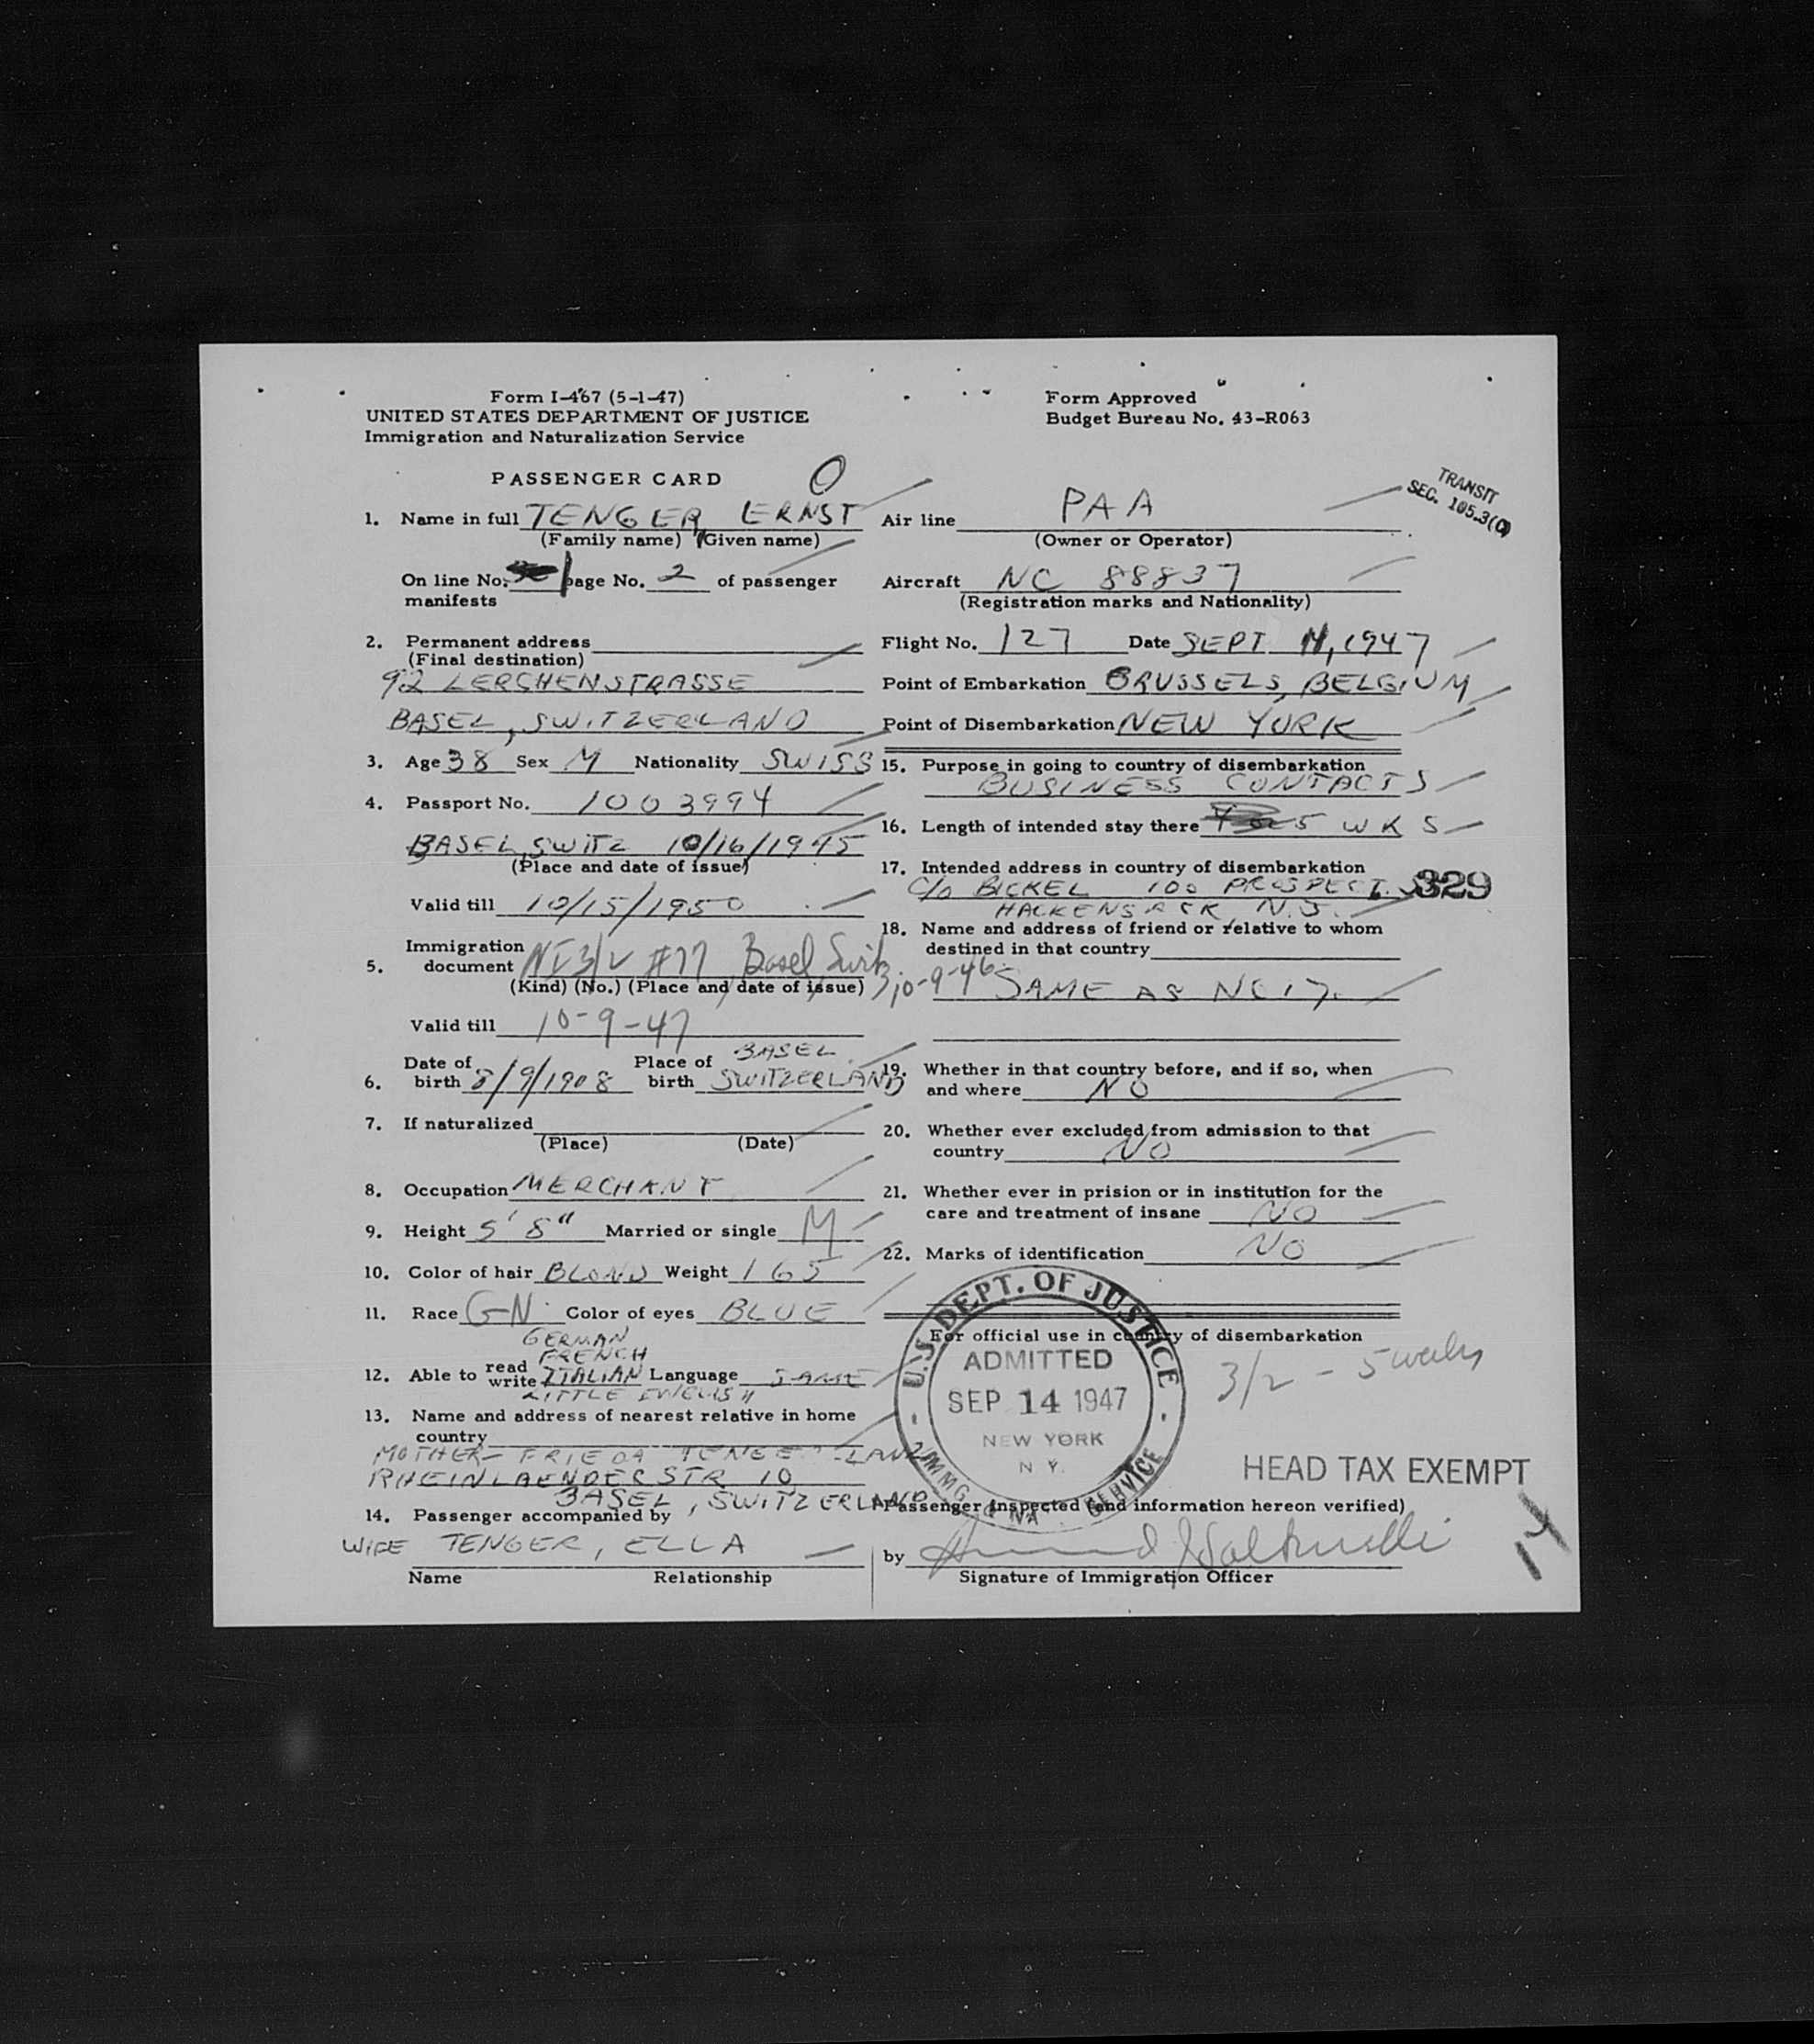 Form I-467 (5-1-47)
UNITED STATES DEPARTMENT OF JUSTICE
Immigration and Naturalization Service
Form Approved
Budget Bureau No. 43-R063
PASSENGER CARD O
TRANSIT
SEC. 105.3(C)
1. Name in full TENGER, ERNST
(Family name) (Given name)
On line No. page No. 2 of passenger
manifests
2. Permanent address
(Final destination)
92 LERCHENSTRASSE
BASEL, SWITZERLAND
3. Age 38 Sex M Nationality SWISS
4. Passport No. 1003994
BASEL, SWITZ 10/16/1945
(Place and date of issue)
Valid till 10/15/1950
5. Immigration document NI 3/2 #77 Basel, Switz, 10-9-46
(Kind) (No.) (Place and date of issue)
Valid till 10-9-47
6. Date of birth 8/9/1908 Place of birth BASEL SWITZERLAND
7. If naturalized
(Place) (Date)
8. Occupation MERCHANT
9. Height 5' 8" Married or single M
10. Color of hair BLOND Weight 165
11. Race GN Color of eyes BLUE
12. Able to read write GERMAN FRENCH ITALIAN LITTLE ENGLISH Language SAME
13. Name and address of nearest relative in home
country
MOTHER- FRIEDA TENGER-LANZ
RHEINLAENDERSTR 10
BASEL, SWITZERLAND
14. Passenger accompanied by
WIFE TENGER, ELLA
Name Relationship
Air line PAA
(Owner or Operator)
Aircraft NC 88837
(Registration marks and Nationality)
Flight No. 127 Date SEPT , 1947
Point of Embarkation BRUSSELS, BELGIUM
Point of Disembarkation NEW YORK
15. Purpose in going to country of disembarkation
BUSINESS CONTACTS
16. Length of intended stay there 5 WKS
17. Intended address in country of disembarkation
C/O BICKEL 100 PROSPECT 329
HACKENSACK, N.J.
18. Name and address of friend or relative to whom
destined in that country
SAME AS NO 17.
19. Whether in that country before, and if so, when
and where NO
20. Whether ever excluded from admission to that
country NO
21. Whether ever in prision or in institution for the
care and treatment of insane NO
22. Marks of identification NO
For official use in country of disembarkation
U.S. DEPT. OF JUSTICE
ADMITTED
SEP 14 1947
NEW YORK
N.Y.
IMMIG. & NAT. SERVICE
3/2 - 5 weeks
HEAD TAX EXEMPT
Passenger Inspected (and information hereon verified)
by
Signature of Immigration Officer